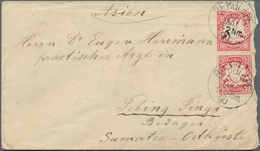 (Asien)
Herrn Dr Eugen Herrmann
practischer Arzt in
Tebing Tinggi
Bedagei
Sumatra-Ostküste